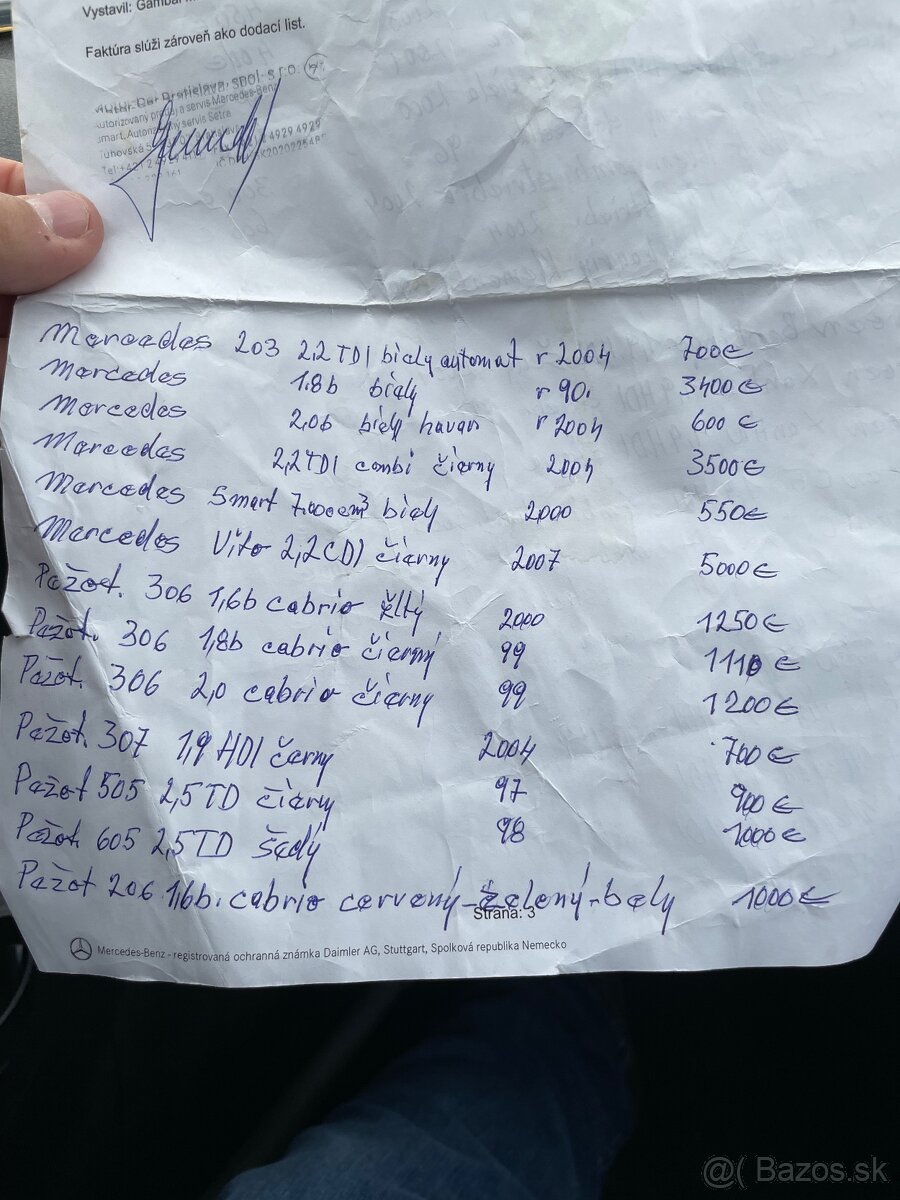 Vystavil: Gambal
Faktúra slúži zároveň ako dodací list.
Bratislava, spol. s r.o.
autorizovaný predaj a servis Mercedes-Benz
smart, Autorizovaný servis Setra
Tuhovská 5
4929 4929
Mercedes 203 2,2 TDI biely automat r 2004 700€
Mercedes 1.8b biely r 90. 3400€
Mercedes 2,0b biely havar r 2004 600€
Mercedes 2,2 TDI combi čierny 2004 3500€
Mercedes Smart biely 2000 550€
Mercedes Vito 2,2 CDI čierny 2007 5000€
Pažot. 306 1,6b cabrio žltý 2000 1250€
Pažot. 306 1,8b cabrio čierný 99 1110€
Pažot. 306 2,0 cabrio čierny 99 1200€
Pažot. 307 1,9 HDI černy 2004 700€
Pažot 505 2,5 TD čierny 97 900€
Pažot. 605 2,5 TD šedý 98 1000€
Pažot 206 1,6b. cabrio cervený-zelený-bely 1000€
Strana: 3
Mercedes-Benz - registrovaná ochranná známka Daimler AG, Stuttgart, Spolková republika Nemecko
@( Bazos.sk